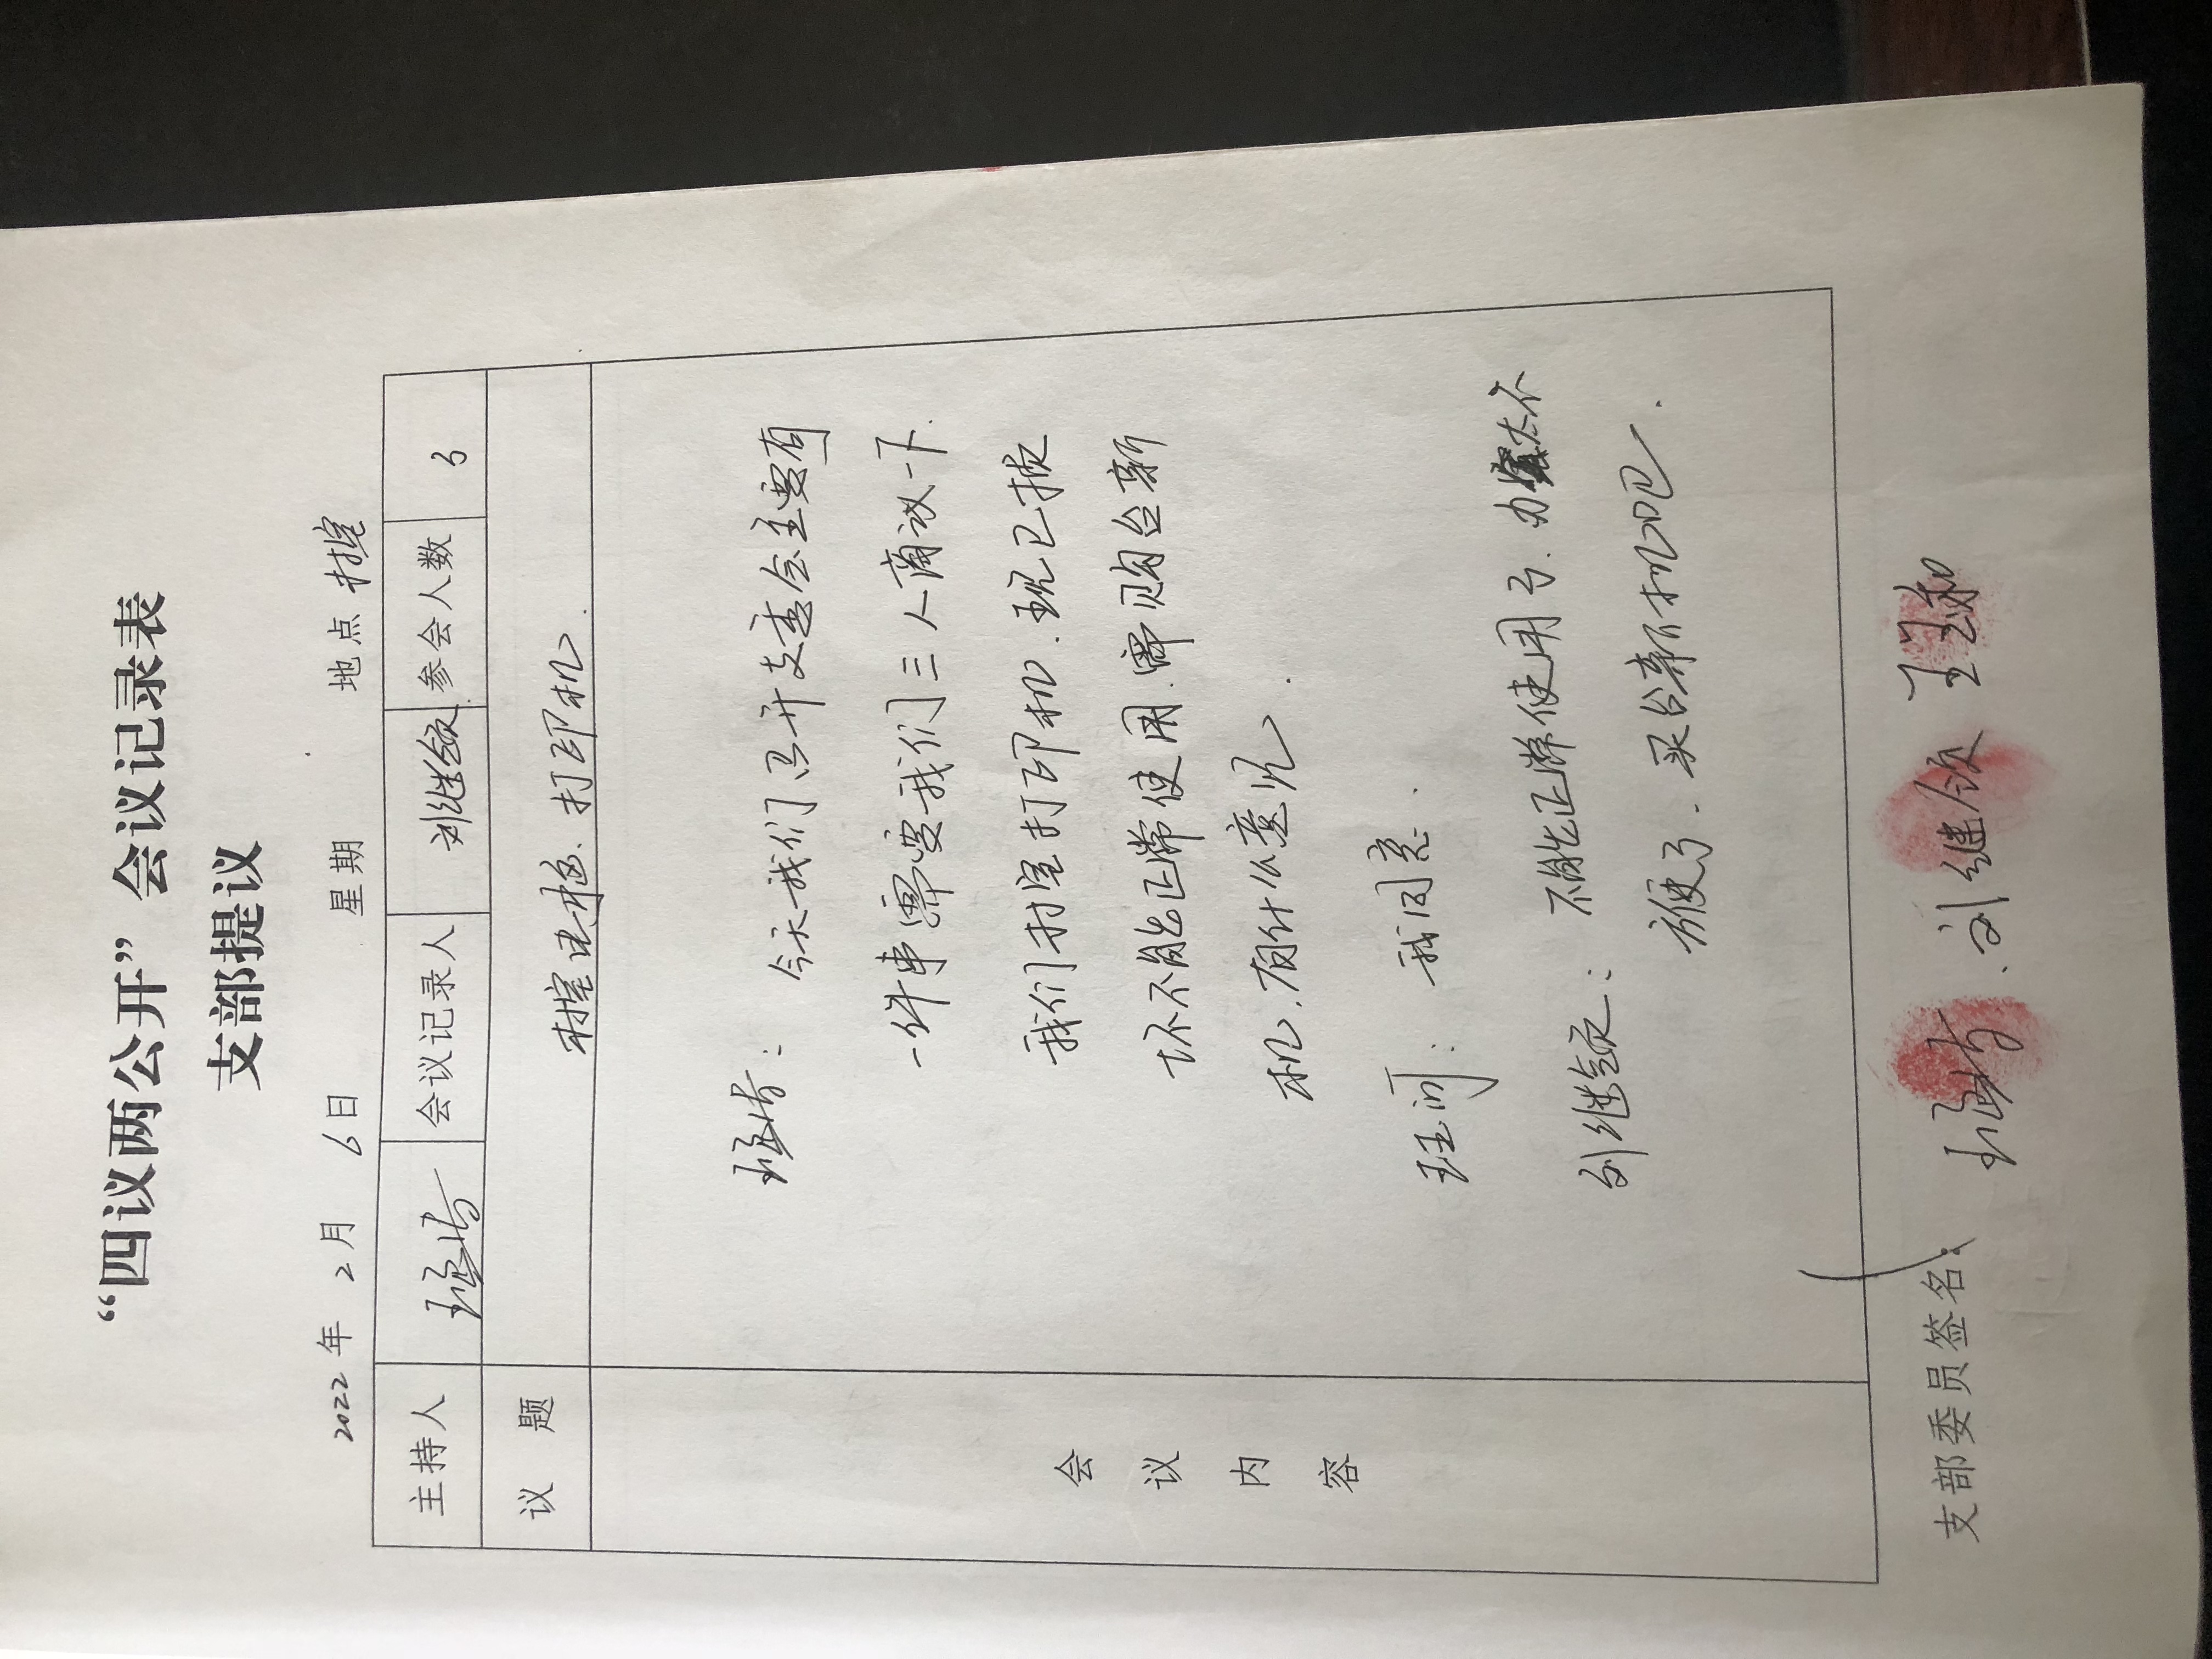 “四议两公开”会议记录表
支部提议
2022年 2月 6日 星期 地点 村室
主持人 会议记录人 刘继领 参会人数 3
议 题 村室电脑、打印机.
会议内容
今天我们召开支委会主要有
一件事需要我们三人商议一下.
我们村室打印机.现已损
坏不能正常使用.需购台新
机.有什么意见.
我同意.
刘继领: 不能正常使用了.办太不
方便了.买台新机吧.
支部委员签名: 刘继领